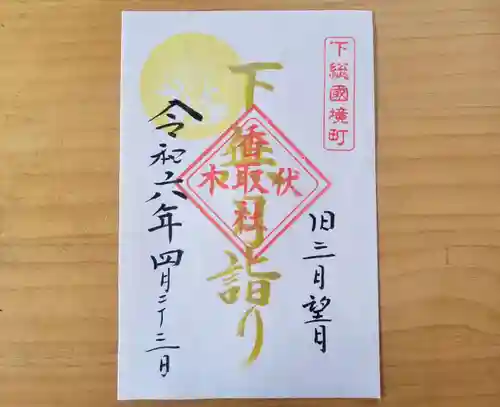 下総國境町
旧三月望日
下月詣り
香取社
伏木
令和六年四月二十三日